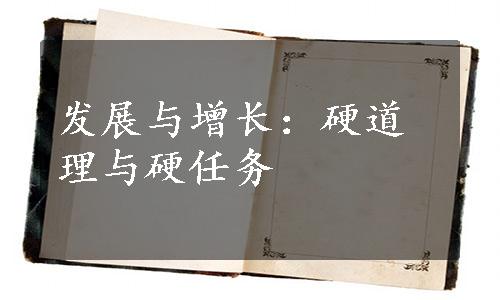 发展与增长：硬道
理与硬任务